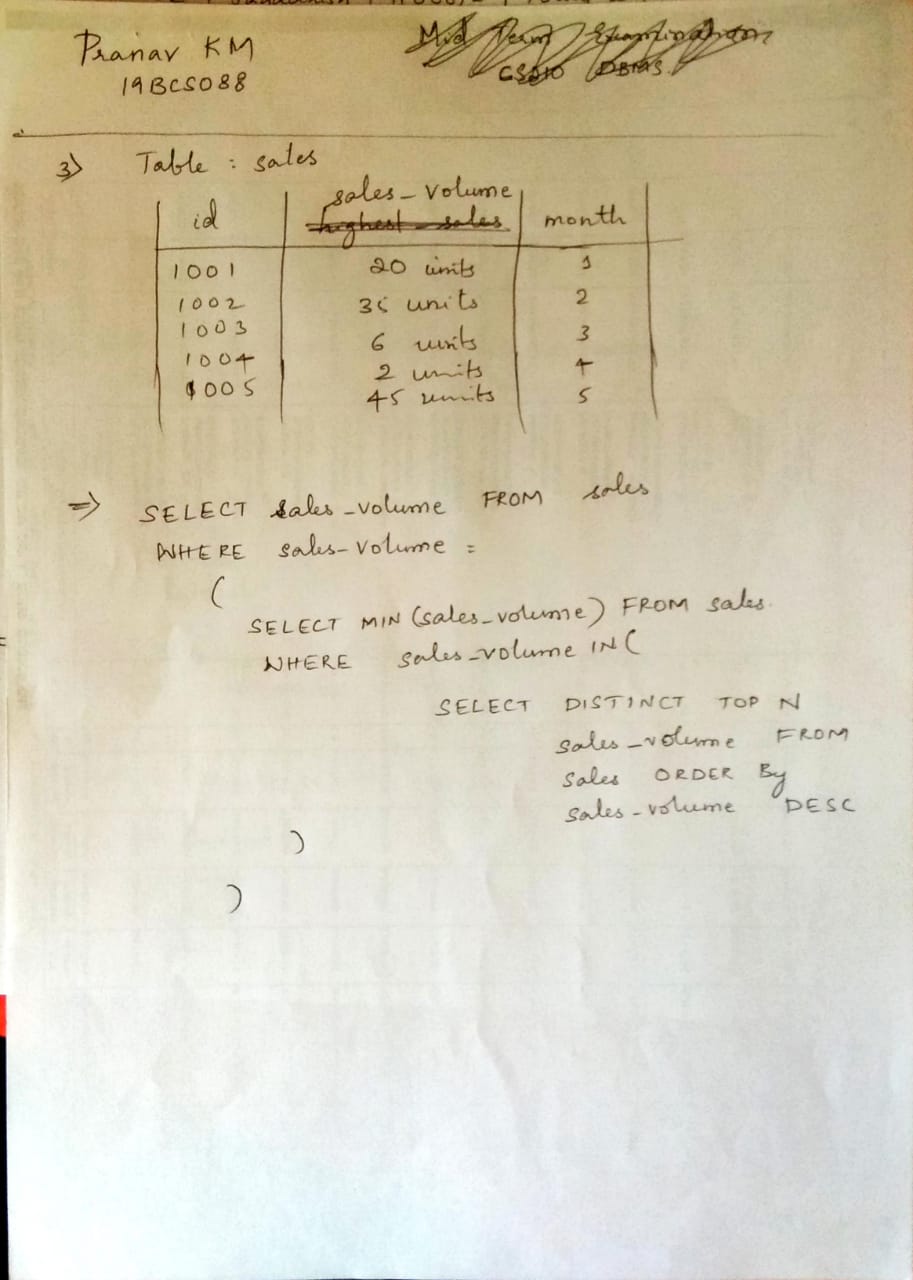 Pranav KM
19BCS088
Mid Term Examination
CS310 DBMS
3) Table : sales
id sales_volume month
highest sales
1001 20 units 1
1002 35 units 2
1003 6 units 3
1004 2 units 4
1005 45 units 5
=> SELECT sales_volume FROM sales
WHERE sales_volume =
(
SELECT MIN (sales_volume) FROM sales
WHERE sales_volume IN (
SELECT DISTINCT TOP N
sales_volume FROM
sales ORDER By
sales_volume DESC
)
)